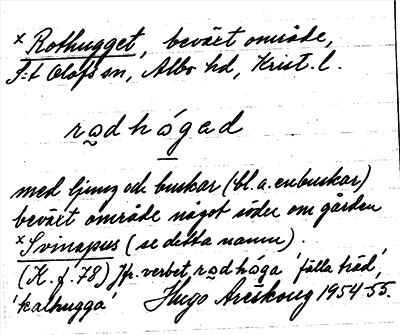 x Rothugget, beväxt område,
S:t Olofs sn, Albo hd, Krist. l.
rødhógad
med ljung och buskar (bl. a. enbuskar)
beväxt område något söder om gården
x Svinapus (se detta namn).
(K. f. 78) Jfr. verbet rødhóga 'fälla träd',
'kalhugga' Hugo Areskoug 1954-55.